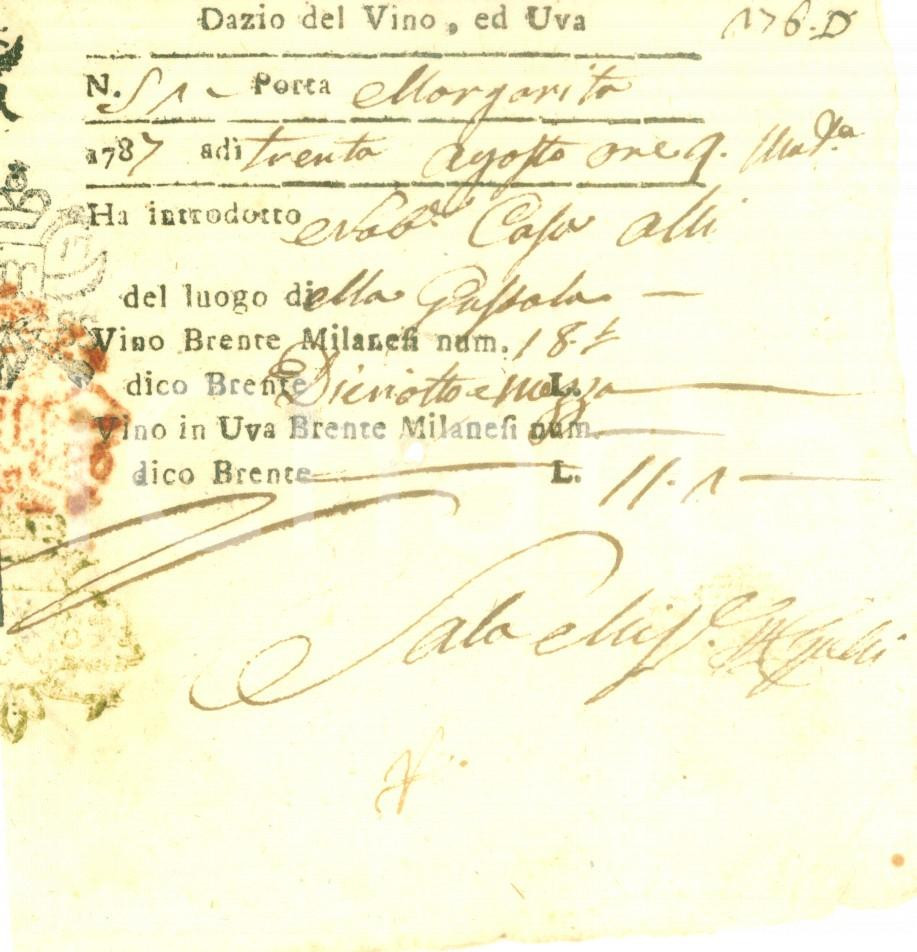 Dazio del Vino, ed Uva 176. D
N. 51 Porta Margarita
1787 adì trenta agosto ore 9.
Ha introdotto Nob. Casa
del luogo di ella Gussola —
Vino Brente Milanesi num. 18.½
dico Brente Dieciotto e mezza L.
Vino in Uva Brente Milanesi num.
dico Brente L. 11.1
Sala